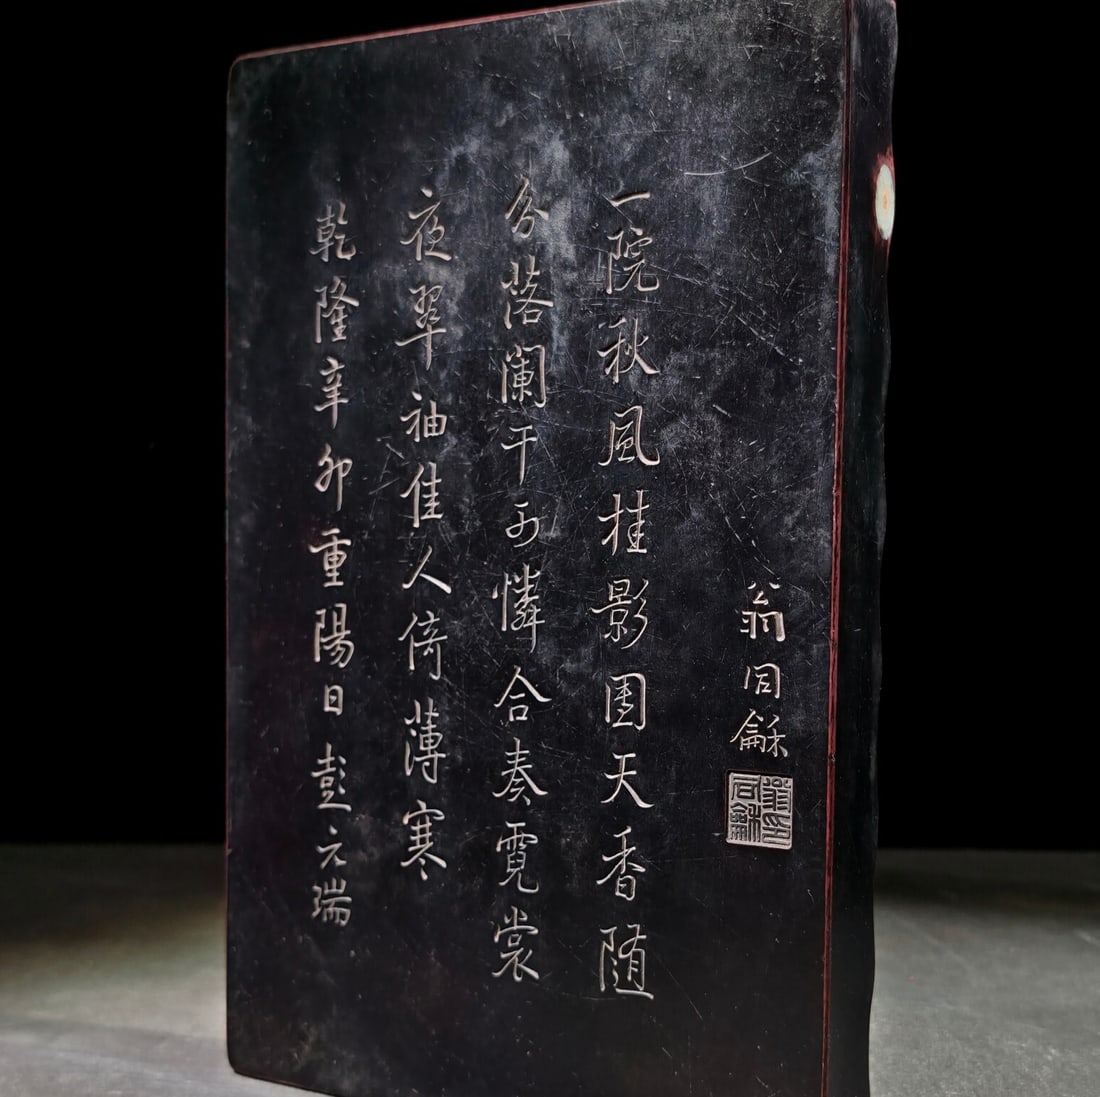 翁同龢
翁同龢印
一院秋風桂影團天香随
分落闌干可憐合奏霓裳
夜翠袖佳人倚薄寒
乾隆辛卯重陽日彭元瑞